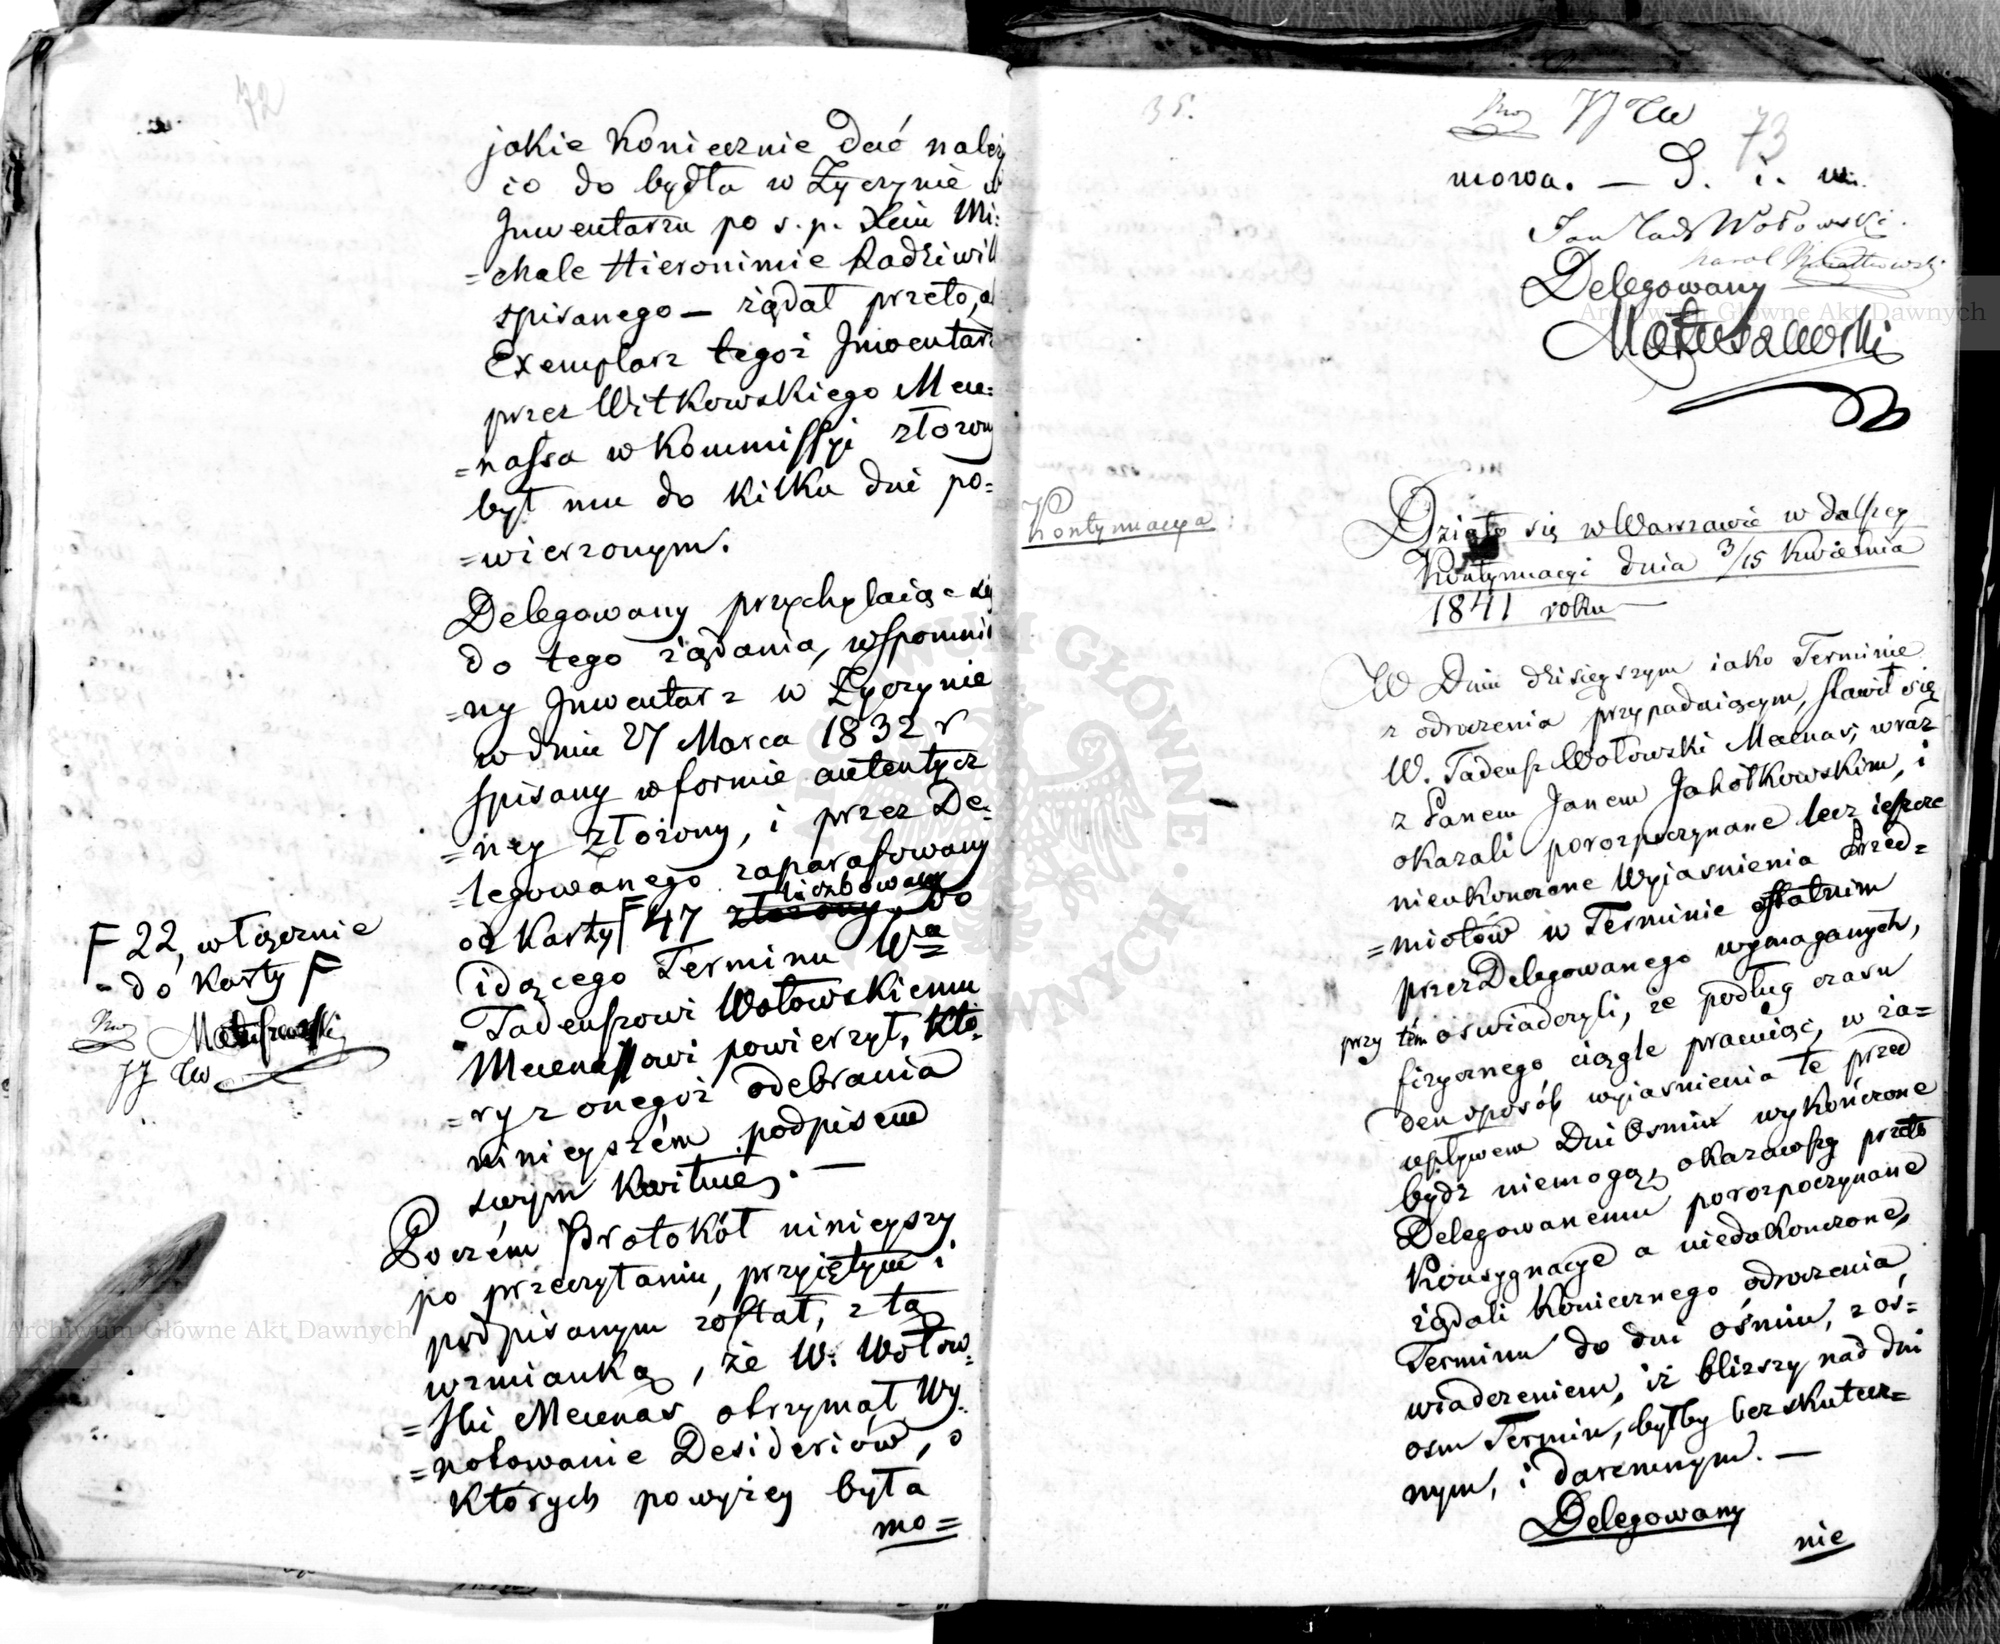 72
jakie Koniecznie dać należy
co do bydła w Życzynie w
Inwentarzu po s. p. Xciu Mi:
=chale Hieronimie Radziwiłł
spisanego — żądał przeto, a
Exemplarz tegoż Inwentarz
przez Witkowskiego Mece:
=nassa w Kommissyi złożony
był mu do kilku dni po=
=wierzonym.
Delegowany przychylaiąc się
do tego żądania, wspomnio
=ny Inwentarz w Życzynie
w dniu 27 Marca 1832 r
spisany w formie autentycz
=ney złożony, i przez De=
=legowanego zaparafowany
liczbowany
od Karty F 47 złożony, do
idącego Terminu Wu
Tadeuszowi Wołowskiemu
Mecenassowi powierzył, Któ=
=ry z onegoż odebrania
ninieyszém podpisem
swym kwituie. —
Poczém Protokół ninieyszy
po przeczytaniu, przyiętym i
podpisanym został, z tą
wzmianką, że W. Wołow=
=ski Mecenas otrzymał Wy=
=notowanie Desideriów, o
których powyżey była
mo=
F 22, włącznie
- do Karty F
Matuszewski
JJ Tw
35.
JJ Tw
73
mowa. — D. i. w.
Jan Tad. Wołowski.
Karol Kwiatkowski
Delegowany
Matuszewski
Kontynuacya :
Działo się w Warszawie w dalszey
Kontynuacyi dnia 3/15 Kwietnia
1841 roku —
W Dniu dzisieyszym iako Terminie
z odroczenia przypadaiącym, stawił się
W. Tadeusz Wołowski Mecenas, wraz
z Panem Janem Jakółkowskim, i
okazali porozpoczynane lecz ieszcze
nieukończone Wyiaśnienia Przed=
=miotów w Terminie ostatnim
przez Delegowanego wymaganych,
przy tém oświadczyli, że podług czasu
fizycznego ciągle pracuiąc, w ża=
den sposób wyiaśnienia te przed
upływem Dni Ośmiu wykończone
bydź niemogą, okazawszy przeto
Delegowanemu porozpoczynane
Konsygnacye a niedokończone,
żądali Koniecznego odroczenia
Terminu do dni ośmiu, z oś=
wiadczeniem, iż bliższy nad dni
osm Termin, byłby bezskutecz=
nym, i daremnym. —
Delegowany
nie
Archiwum Główne Akt Dawnych
Archiwum Główne Akt Dawnych
ARCHIWUM GŁÓWNE AKT DAWNYCH